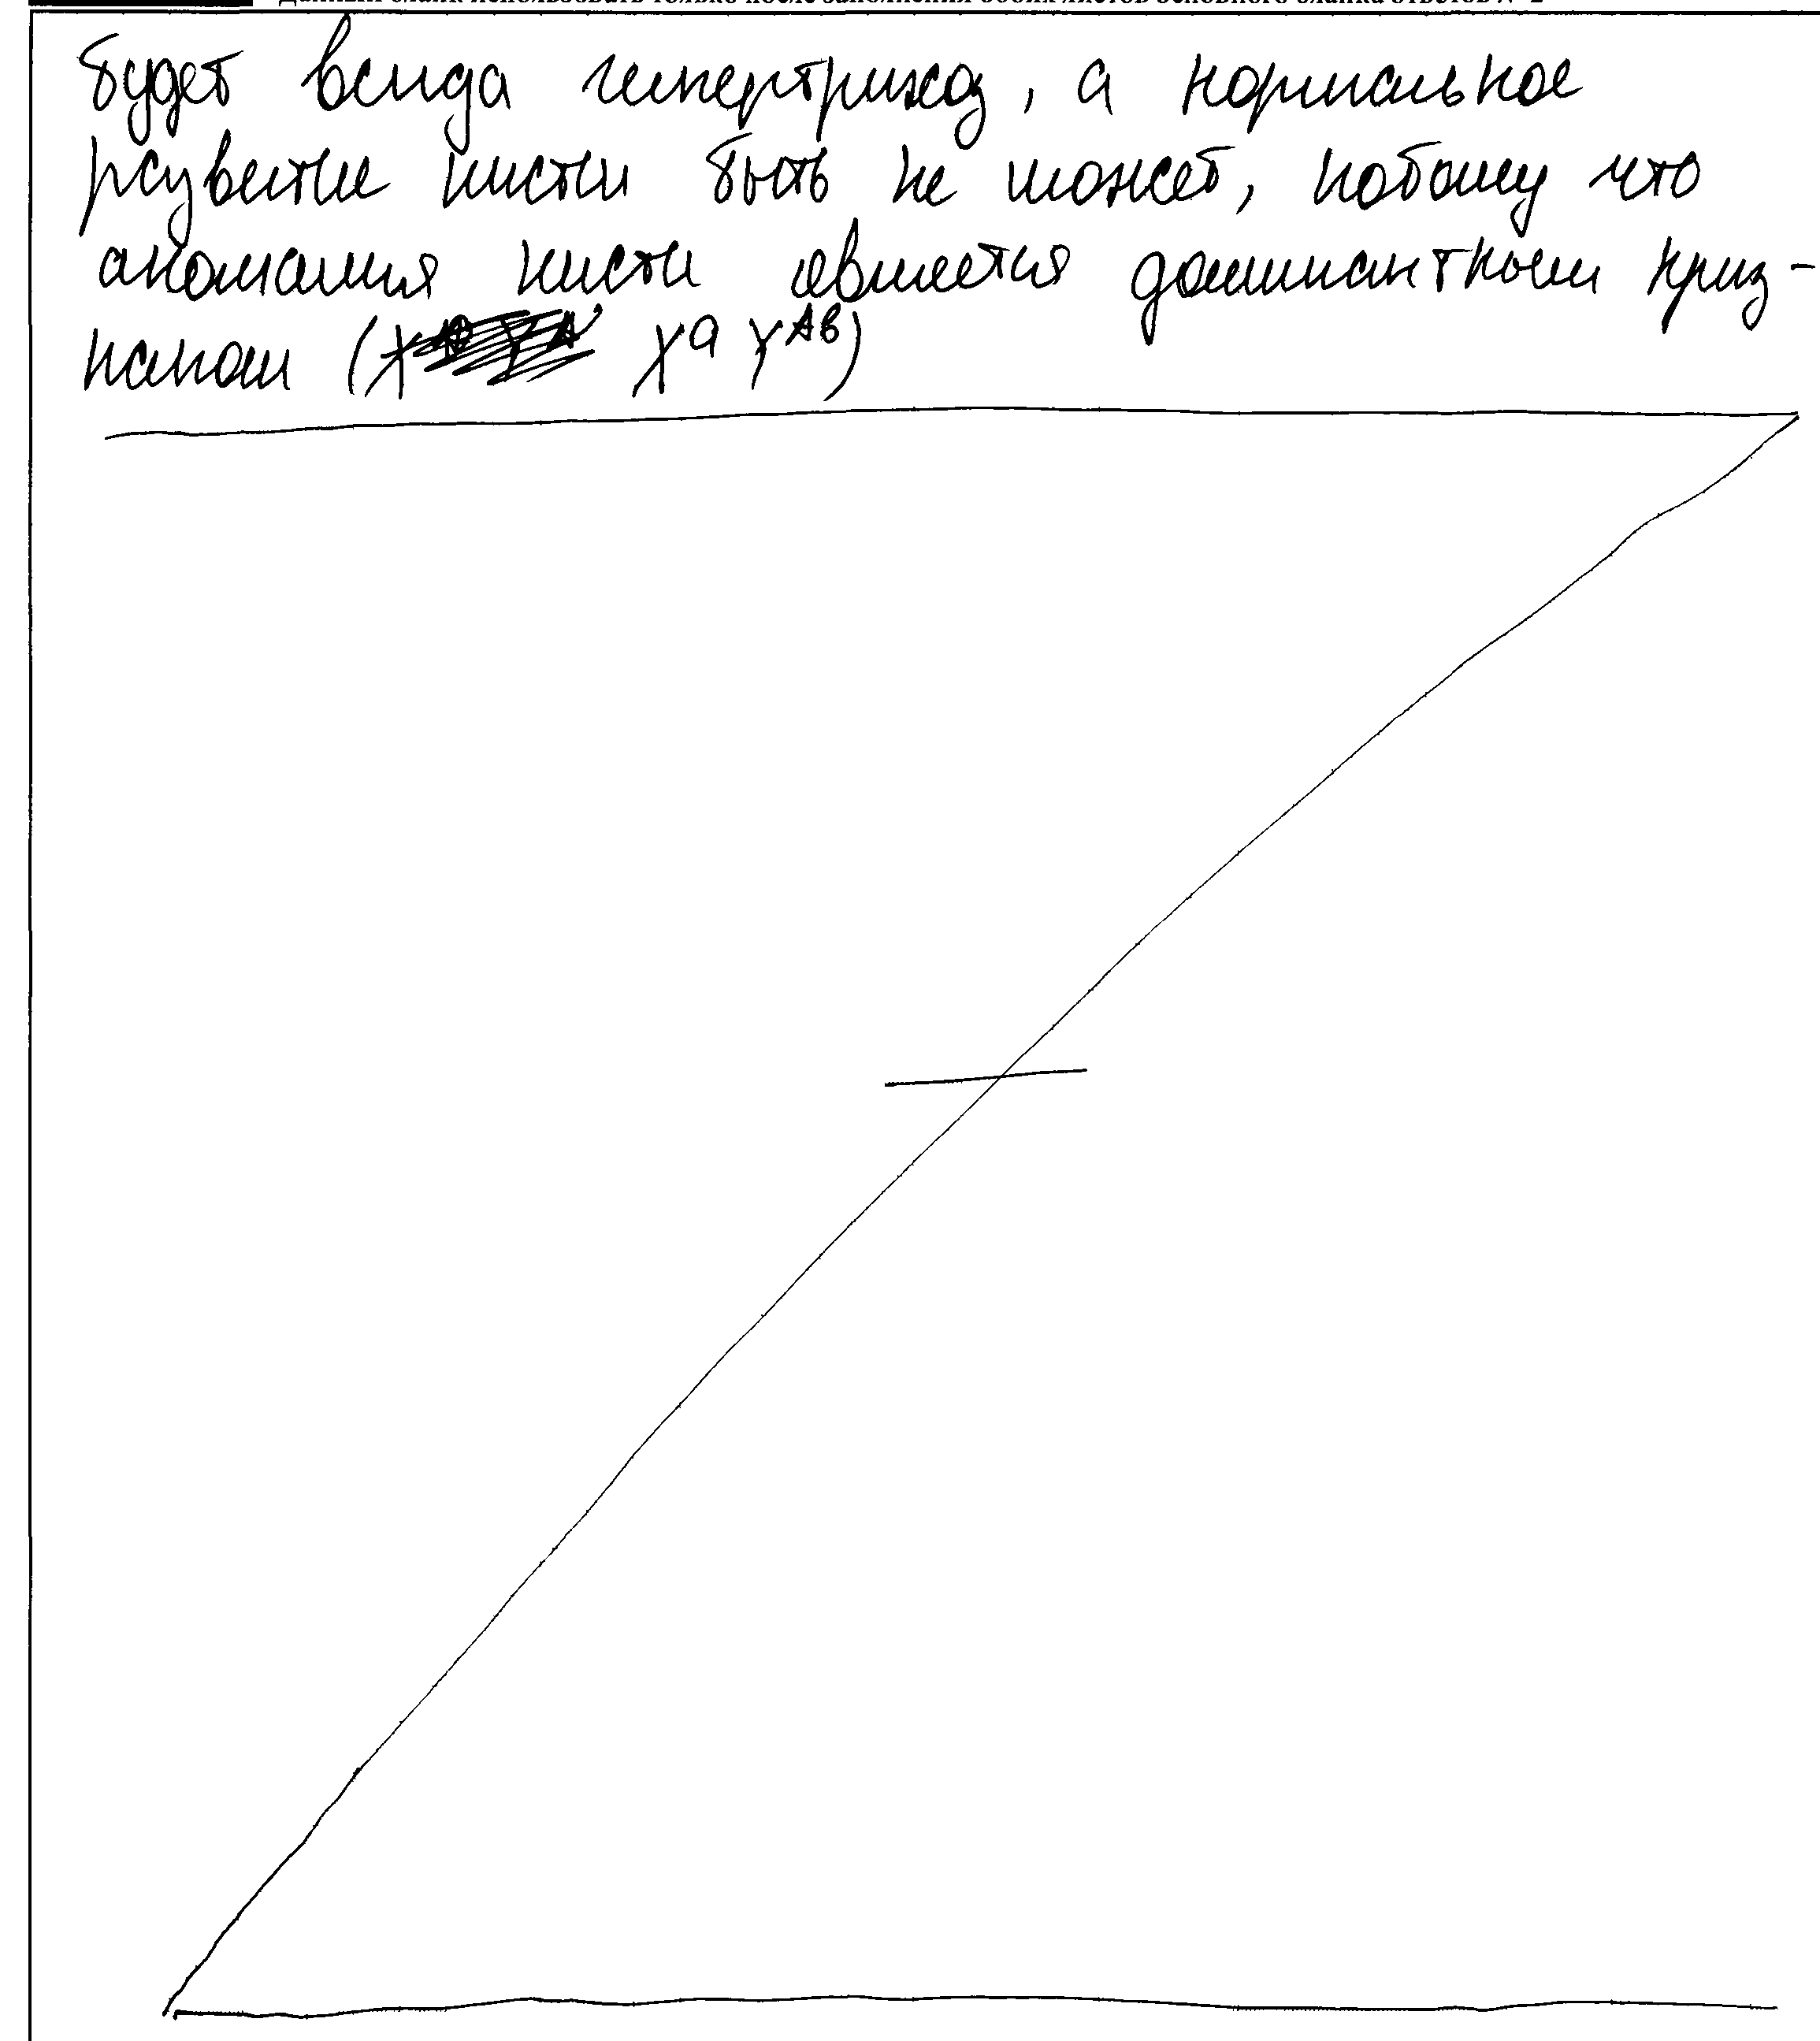 Данный бланк использовать только после заполнения обоих листов основного бланка ответов № 2
будет всигда гипертрихоз, а нормальное
развитие кисти быть не может, потому что
аномалия кисти является доминантным приз-
наком (X^a Y^Aв)